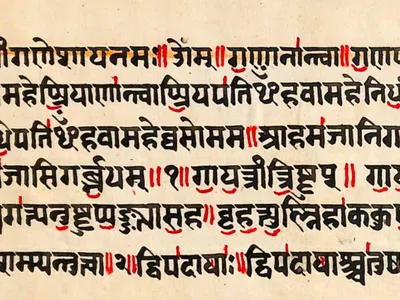 गणेशायनमः॥ ॐम्॥ गणानांत्वा॥ गणप
महेप्प्रियाणांत्वाप्प्रियपतिᳪहवामहेनिधी
धिपतिᳪहवामहेव्वसोमम॥ आहमजानिग
जासिगर्ब्भधम्॥१॥ गायत्रीत्रिष्टुप्॥ गाय
गत्यनुष्टुप्पङ्क्त्यासह॥ बृहत्युष्णिहाककुप्
म्म्यन्तुत्वा॥२॥ द्विपदायाः॥ द्विपदायाश्चतुष्प